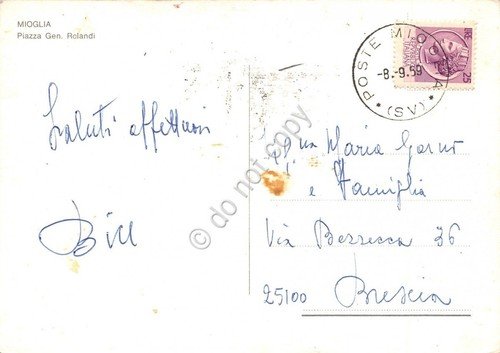 MIOGLIA
Piazza Gen. Rolandi
POSTE MIOGLIA
-8.-9.59
* (SV) *
25
Saluti affettuosi
Bill
Maria
e Famiglia
Via Bezzecca 36
25100 Brescia
do not copy